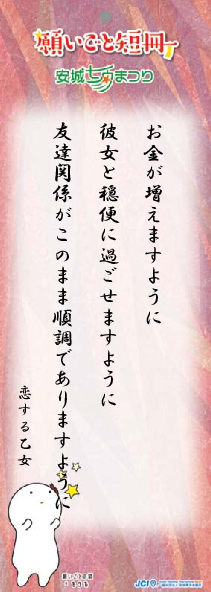 願いごと短冊
安城七夕まつり
お金が増えますように
彼女と穏便に過ごせますように
友達関係がこのまま順調でありますように
恋する乙女
願いごと短冊
JCI